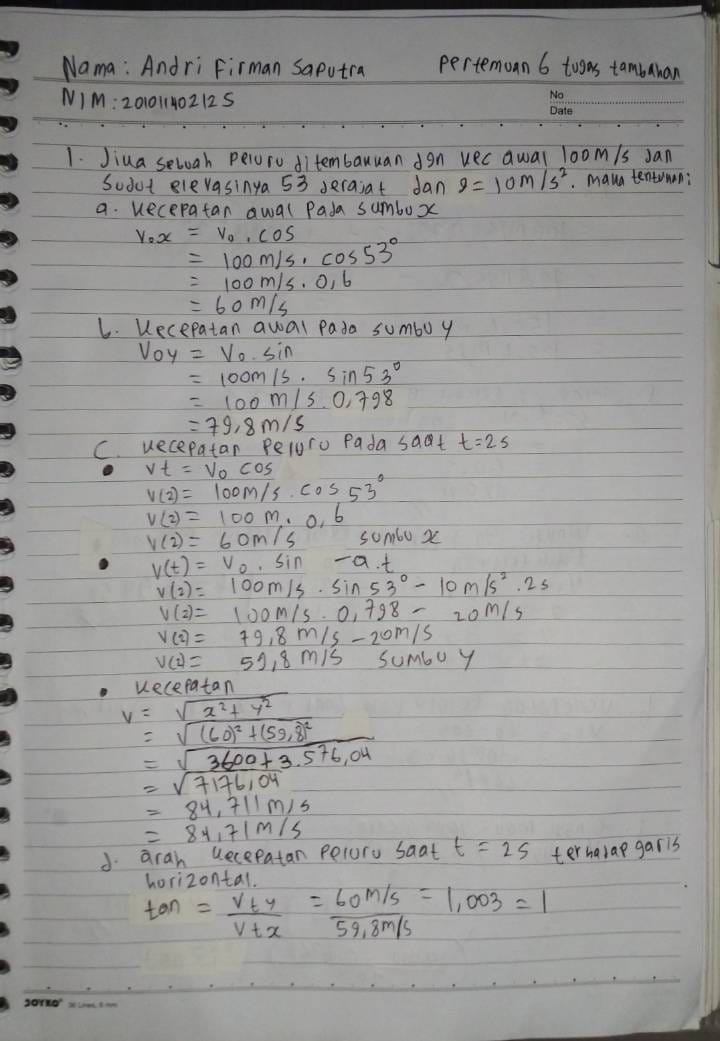 Nama: Andri Firman Saputra Pertemuan 6 tugas tambahan
NIM: 201011402125
No
Date
1. Jika sebuah peluru ditembakkan dgn kec awal 100 m/s dan
Sudut elevasinya 53 derajat dan g = 10 m/s². maka tentukan:
a. Kecepatan awal Pada sumbu x
Vox = Vo . cos
= 100 m/s . cos 53°
= 100 m/s . 0,6
= 60 m/s
b. Kecepatan awal Pada sumbu y
Voy = Vo . sin
= 100 m/s . sin 53°
= 100 m/s . 0,798
= 79,8 m/s
C. kecepatan Peluru Pada saat t=2s
• Vt = Vo cos
V(2) = 100 m/s . cos 53°
V(2) = 100 m. 0,6
V(2) = 60 m/s sumbu x
• V(t) = Vo . sin - a.t
V(2) = 100 m/s . sin 53° - 10 m/s² . 2s
V(2) = 100 m/s . 0,798 - 20 m/s
V(2) = 79,8 m/s - 20 m/s
V(2) = 59,8 m/s sumbu y
• kecepatan
V = √x² + y²
= √(60)² + (59,8)²
= √3600 + 3.576,04
= √7176,04
= 84,711 m/s
= 84,71 m/s
d. arah kecepatan Peluru saat t = 2s terhadap garis
horizontal.
tan = Vty / Vtx = 60 m/s / 59,8 m/s = 1,003 = 1
JOYKO 36 Lines, 8 mm